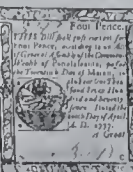 Four Pence.
THIS Bill shall pass current for
Four Pence, according to an Act
of General Assembly of the Common-
Wealth of Pennsylvania, passed
the Twentieth Day of March, in
the Year
sand Seven Hun-
dred and Seventy
seven. Dated the
Tenth Day of April
A. D. 1777.
A Groat